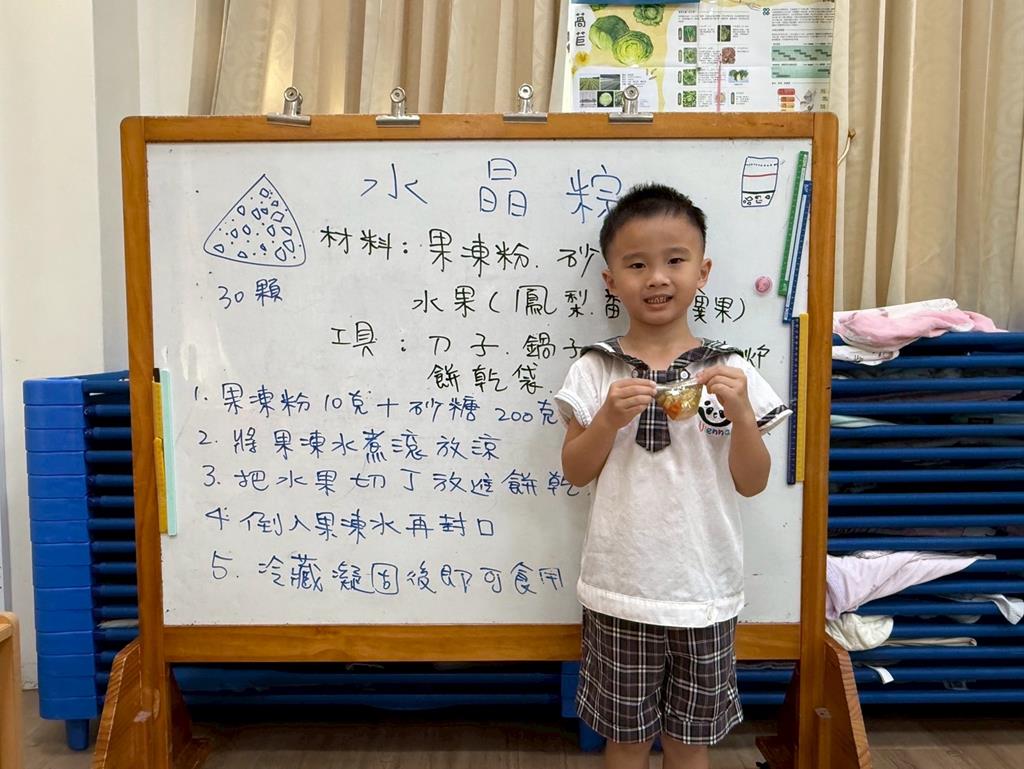 萵苣
水晶粽
材料：果凍粉．砂
水果(鳳梨．番 蘋果)
30顆
工具：刀子．鍋子
餅乾袋
1. 果凍粉10克＋砂糖 200克
2. 將果凍水煮滾放涼
3. 把水果切丁放進餅乾
4. 倒入果凍水再封口
5. 冷藏凝固後即可食用
Vienna